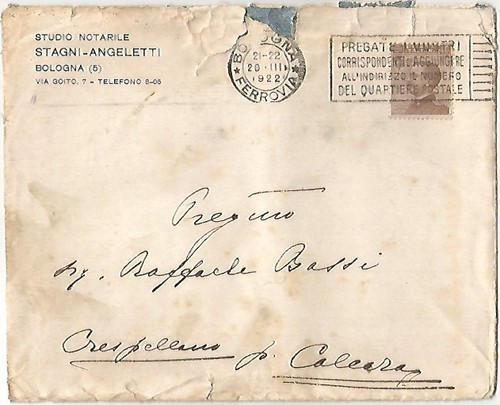 STUDIO NOTARILE
STAGNI-ANGELETTI
BOLOGNA (5)
VIA GOITO, 7 - TELEFONO 8-05
BOLOGNA
21-22
20 III
1922
FERROVIA
PREGATE I VOSTRI
CORRISPONDENTI AGGIUNGERE
ALL'INDIRIZZO IL NUMERO
DEL QUARTIERE POSTALE
Pregmo
Sig. Raffaele Bassi
Crespellano p. Calcara